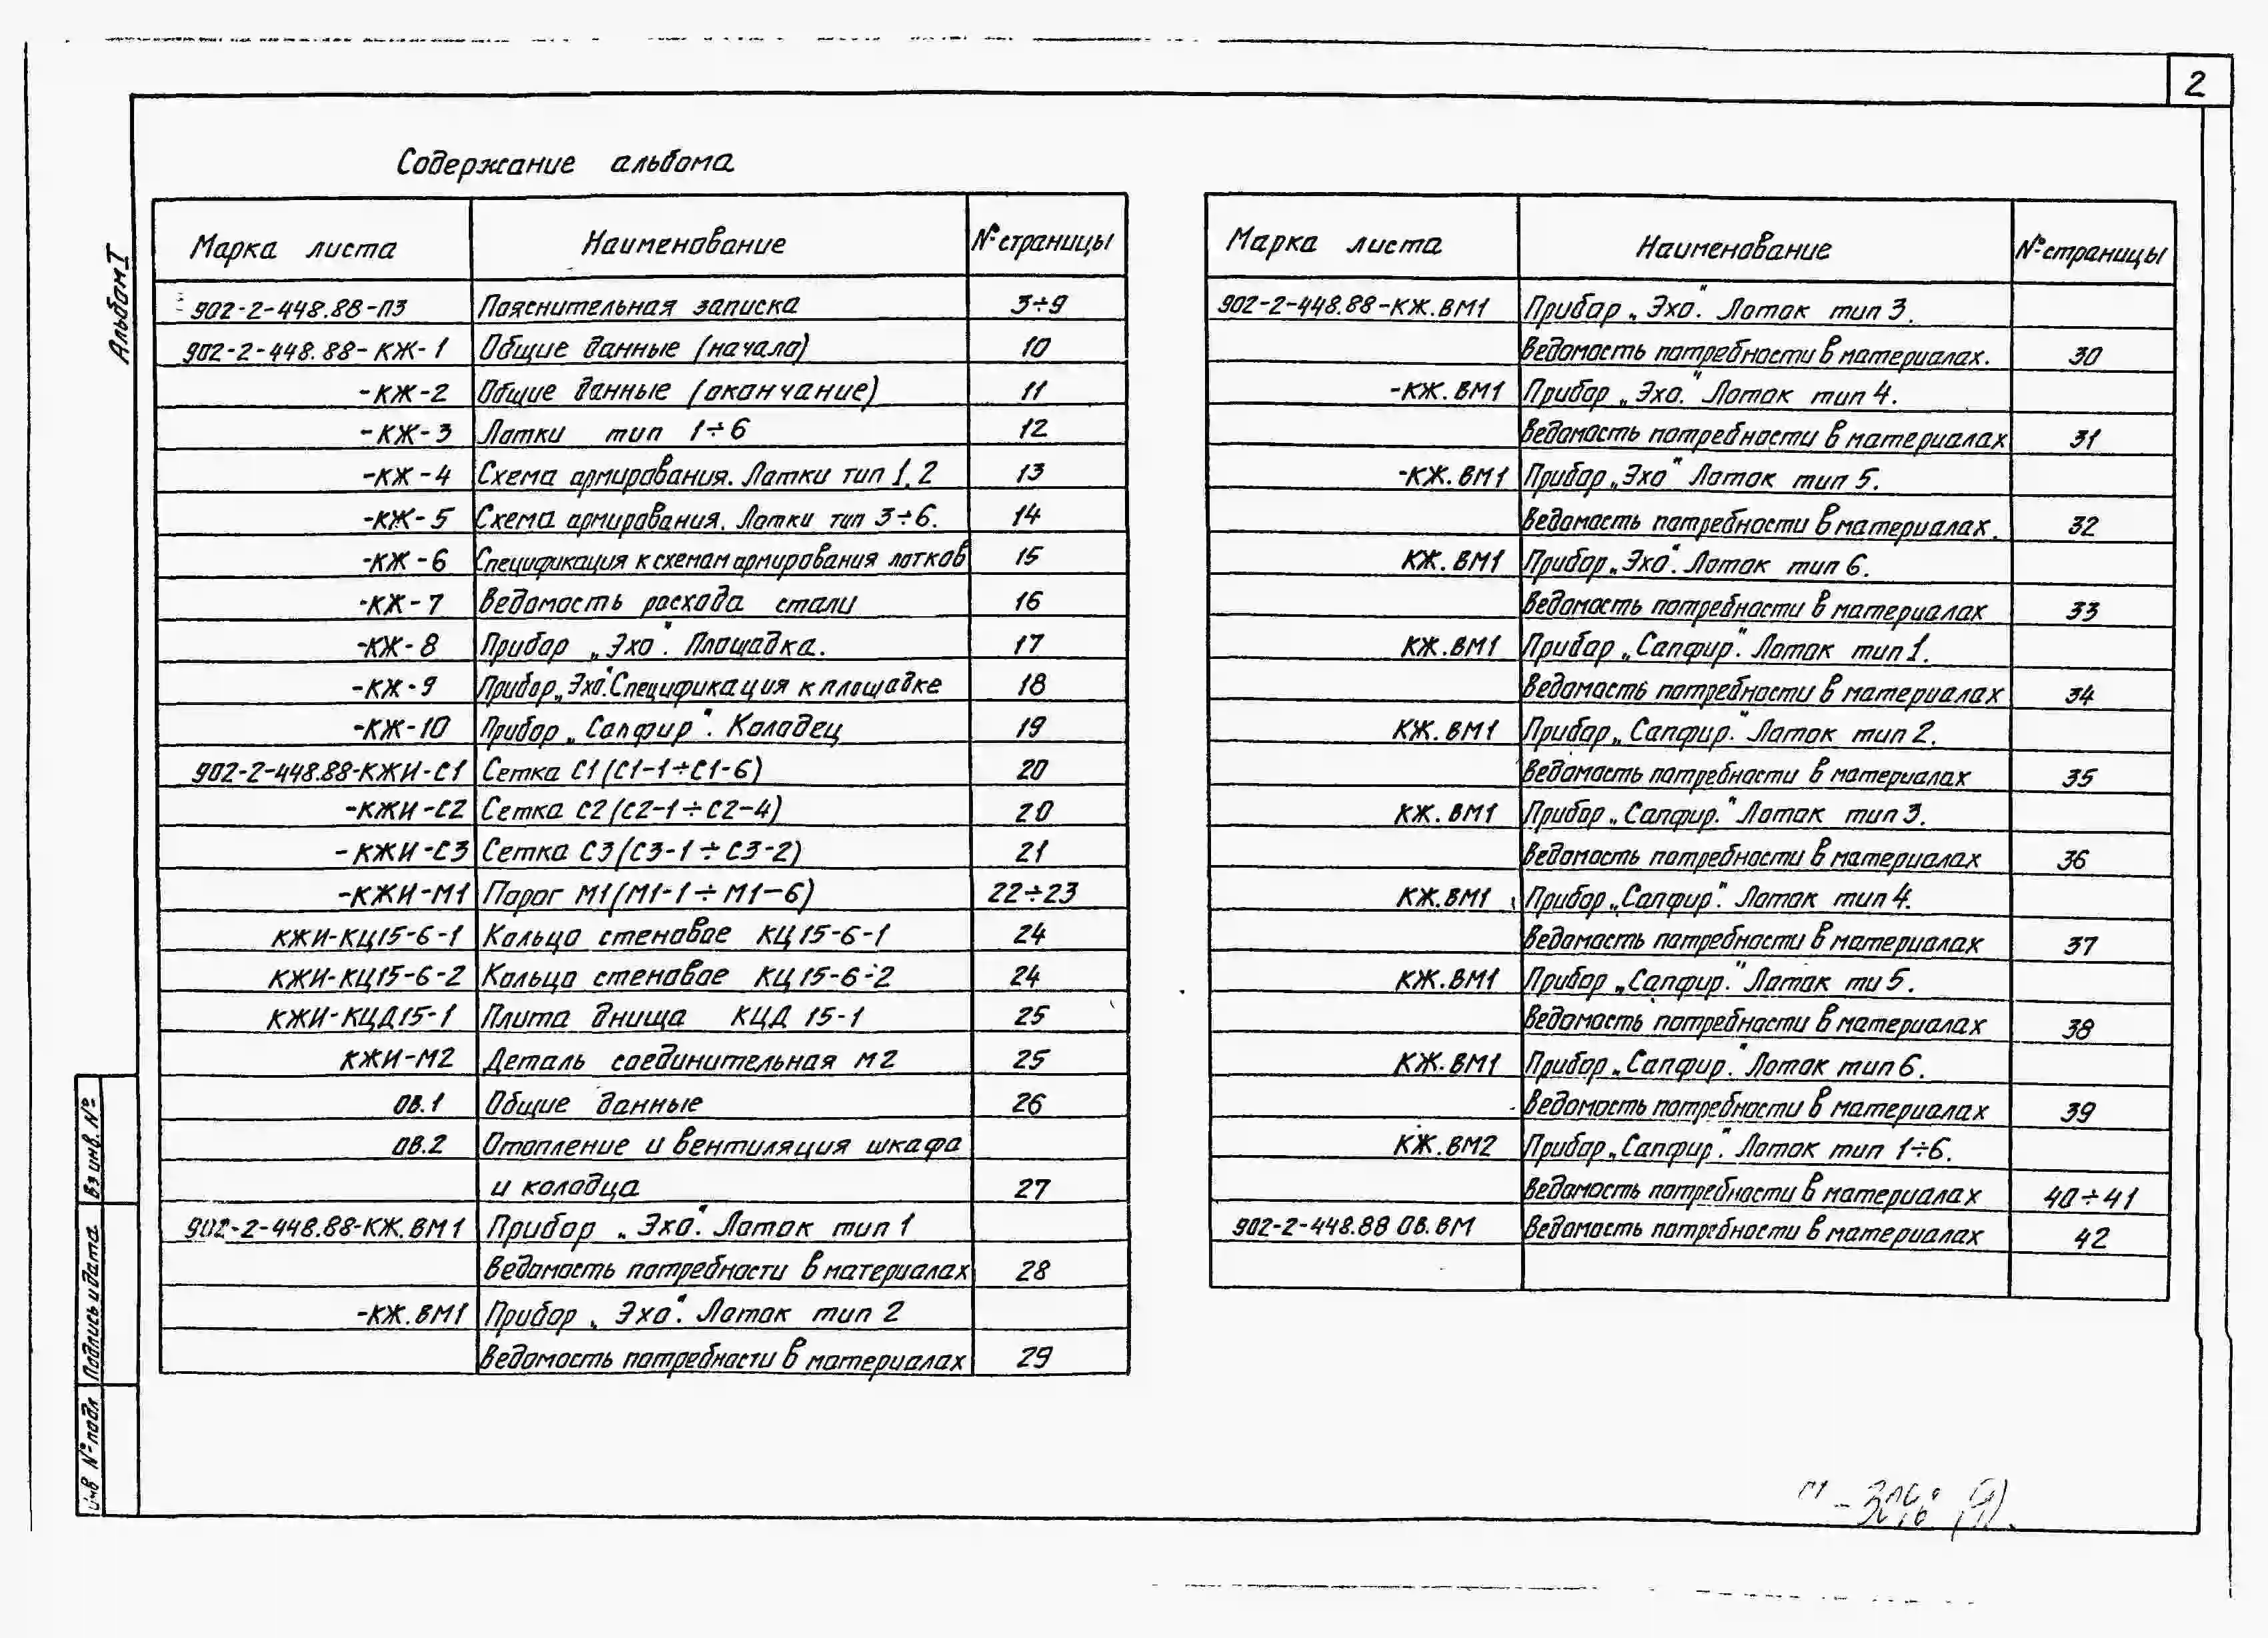 2
Содержание альбома
Альбом I
Марка листа Наименование № страницы
902-2-448.88-ПЗ Пояснительная записка 3÷9
902-2-448.88-КЖ-1 Общие данные (начало) 10
-КЖ-2 Общие данные (окончание) 11
-КЖ-3 Лотки тип 1÷6 12
-КЖ-4 Схема армирования. Лотки тип 1, 2 13
-КЖ-5 Схема армирования. Лотки тип 3÷6. 14
-КЖ-6 Спецификация к схемам армирования лотков 15
-КЖ-7 Ведомость расхода стали 16
-КЖ-8 Прибор „Эхо". Площадка. 17
-КЖ-9 Прибор „Эхо". Спецификация к площадке 18
-КЖ-10 Прибор „Сапфир". Колодец 19
902-2-448.88-КЖИ-С1 Сетка С1 (С1-1÷С1-6) 20
-КЖИ-С2 Сетка С2 (С2-1÷С2-4) 20
-КЖИ-С3 Сетка С3 (С3-1÷С3-2) 21
-КЖИ-М1 Порог М1 (М1-1÷М1-6) 22÷23
КЖИ-КЦ15-6-1 Кольцо стеновое КЦ 15-6-1 24
КЖИ-КЦ15-6-2 Кольцо стеновое КЦ 15-6-2 24
КЖИ-КЦД15-1 Плита днища КЦД 15-1 25
КЖИ-М2 Деталь соединительная М2 25
ОВ.1 Общие данные 26
ОВ.2 Отопление и вентиляция шкафа
и колодца 27
902-2-448.88-КЖ.ВМ1 Прибор „Эхо". Лоток тип 1
Ведомость потребности в материалах 28
-КЖ.ВМ1 Прибор „Эхо". Лоток тип 2
Ведомость потребности в материалах 29
Марка листа Наименование № страницы
902-2-448.88-КЖ.ВМ1 Прибор „Эхо". Лоток тип 3.
Ведомость потребности в материалах. 30
-КЖ.ВМ1 Прибор „Эхо". Лоток тип 4.
Ведомость потребности в материалах 31
-КЖ.ВМ1 Прибор „Эхо" Лоток тип 5.
Ведомость потребности в материалах. 32
КЖ.ВМ1 Прибор „Эхо". Лоток тип 6.
Ведомость потребности в материалах 33
КЖ.ВМ1 Прибор „Сапфир". Лоток тип 1.
Ведомость потребности в материалах 34
КЖ.ВМ1 Прибор „Сапфир." Лоток тип 2.
Ведомость потребности в материалах 35
КЖ.ВМ1 Прибор „Сапфир." Лоток тип 3.
Ведомость потребности в материалах 36
КЖ.ВМ1 Прибор „Сапфир". Лоток тип 4.
Ведомость потребности в материалах 37
КЖ.ВМ1 Прибор „Сапфир." Лоток ти 5.
Ведомость потребности в материалах 38
КЖ.ВМ1 Прибор „Сапфир." Лоток тип 6.
Ведомость потребности в материалах 39
КЖ.ВМ2 Прибор „Сапфир". Лоток тип 1÷6.
Ведомость потребности в материалах 40÷41
902-2-448.88 ОВ.ВМ Ведомость потребности в материалах 42
Вз инв. №
Подпись и дата
Инв № подл